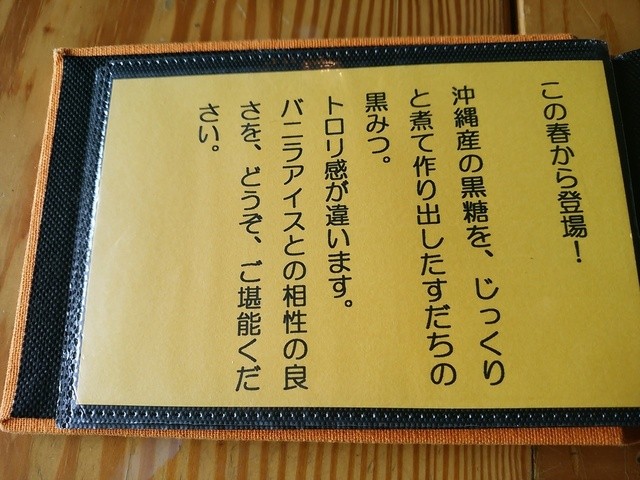 この春から登場！
沖縄産の黒糖を、じっくり
と煮て作り出したすだちの
黒みつ。
トロリ感が違います。
バニラアイスとの相性の良
さを、どうぞ、ご堪能くだ
さい。